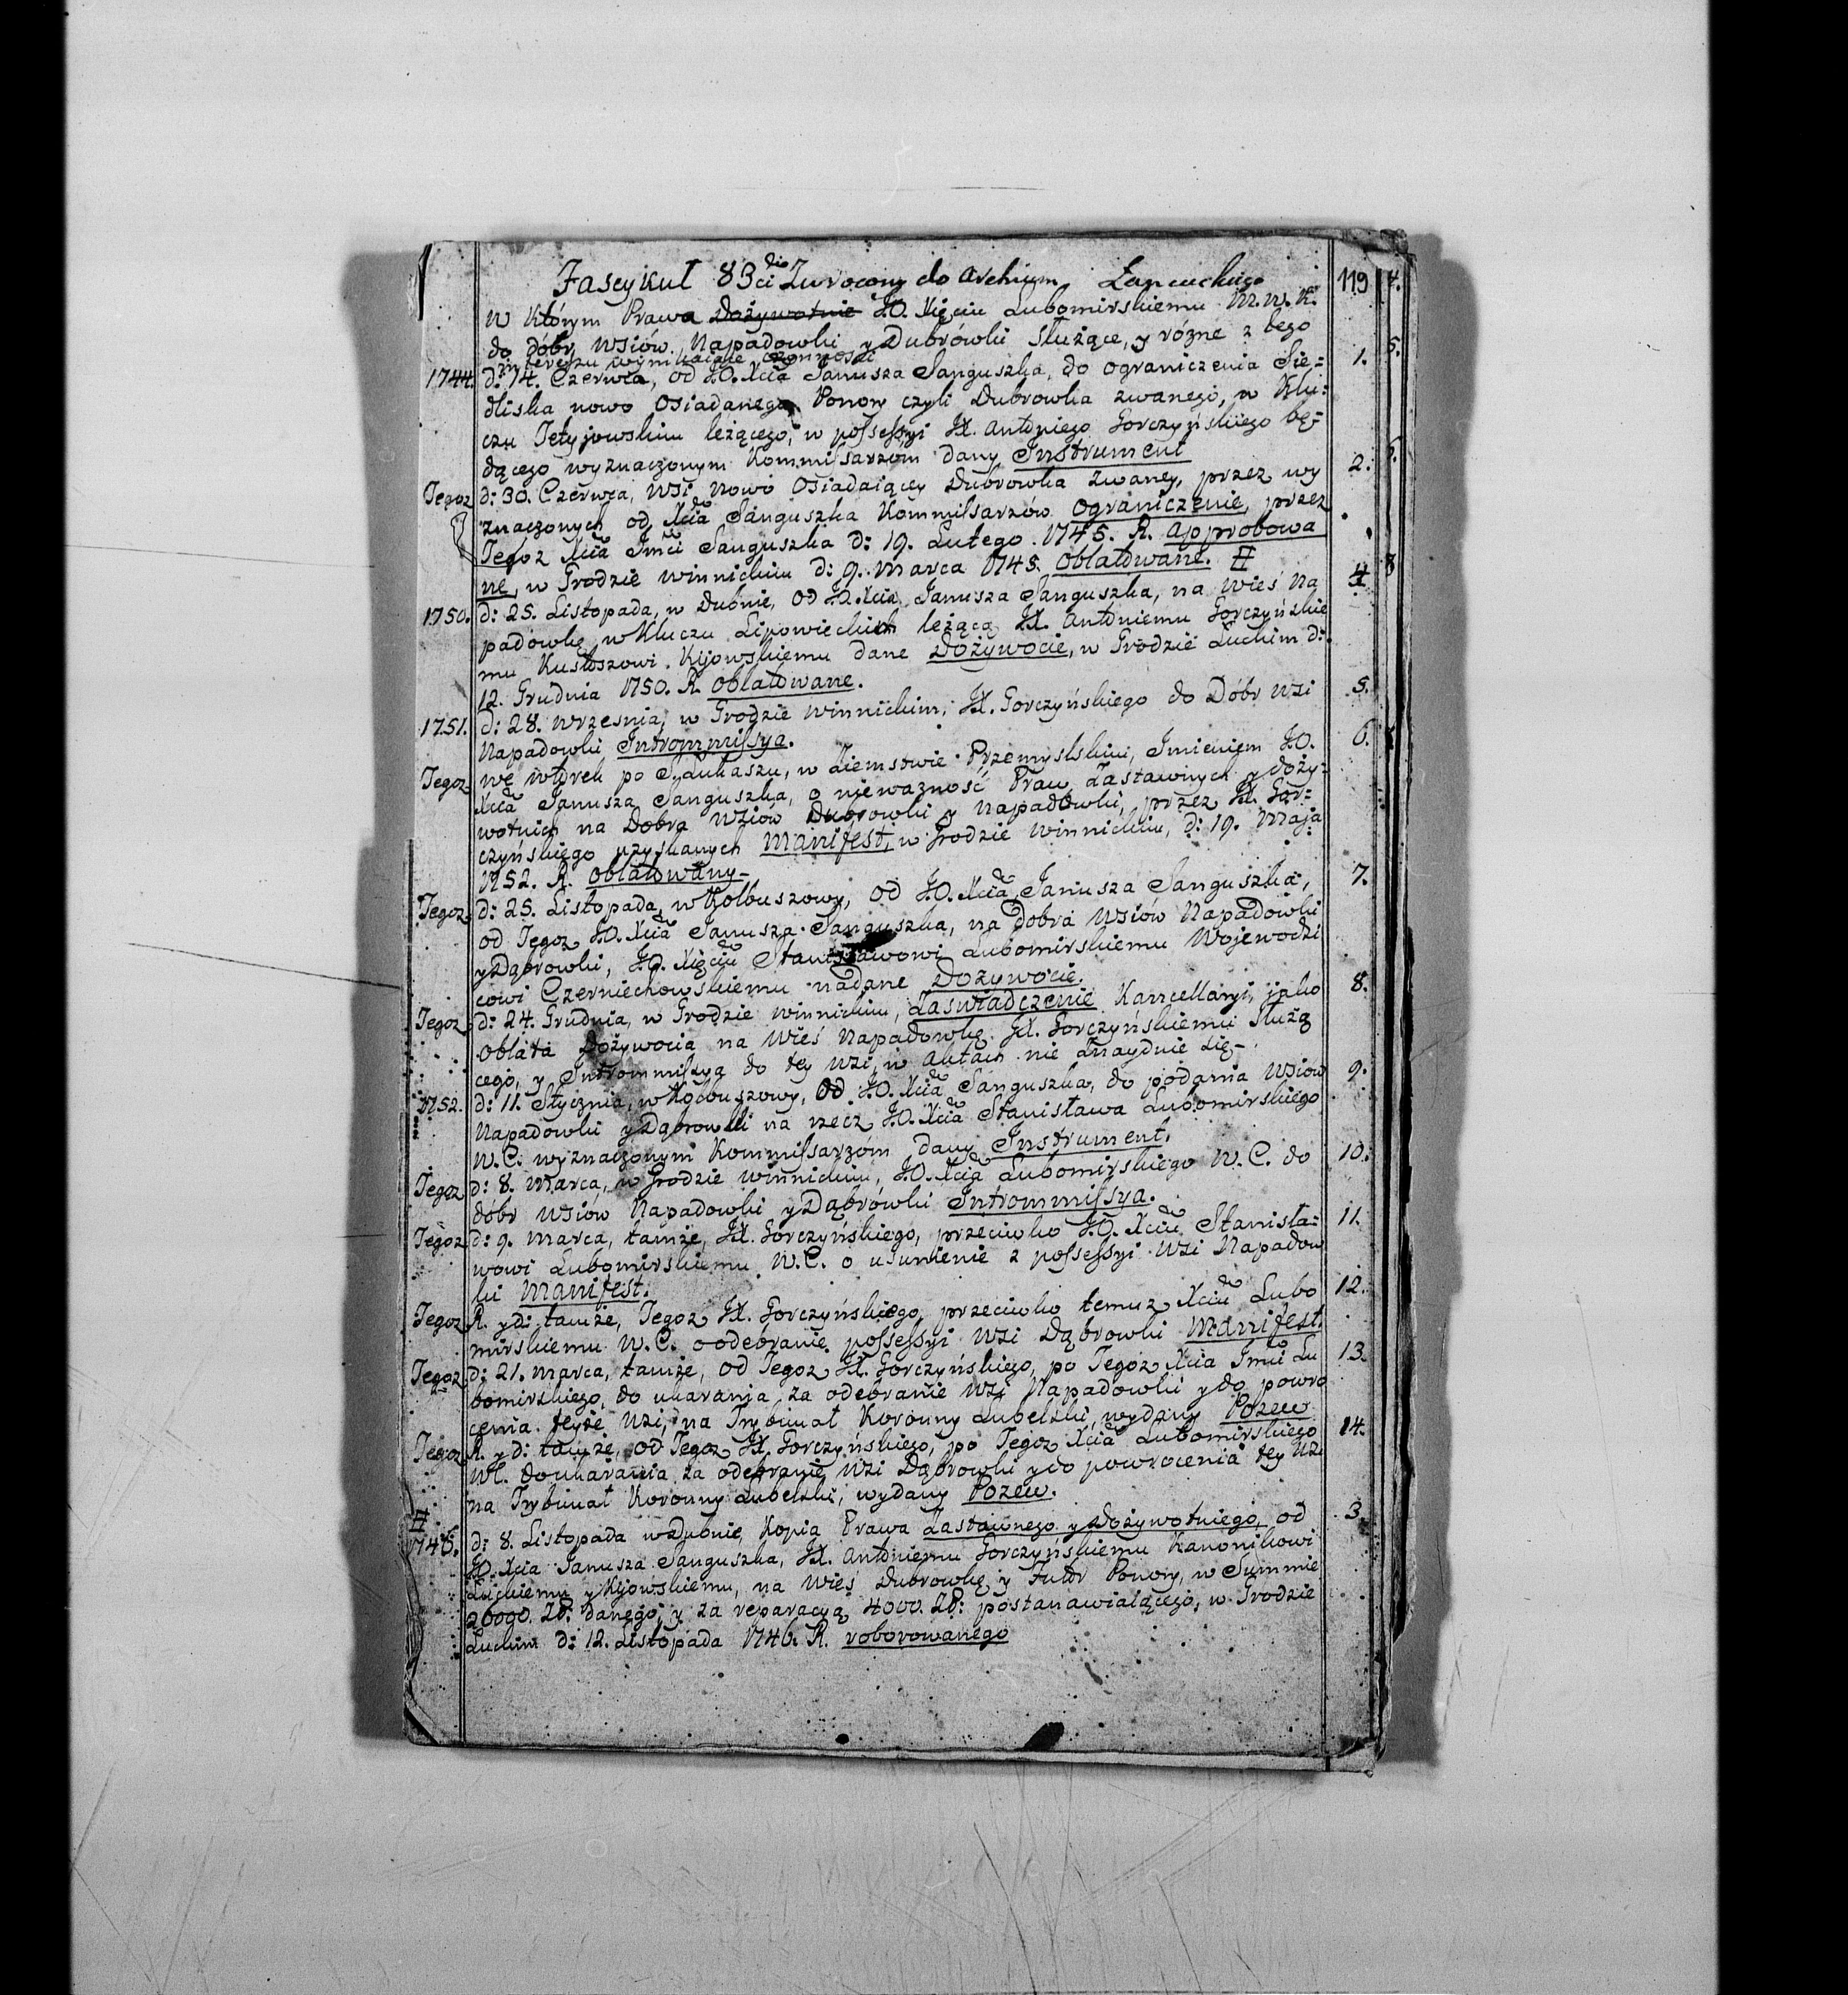 Fascykuł 83ci Zwrocony do Archiwum Łancuckiego 119
w którym Prawa Dożywotnie J.O. Xięciu Lubomirskiemu M.W.K.
do dóbr wsiów Napadowki y Dubrówki służące, y rózne z tego
interessu wynikaiące czynnosci
1744. d: 14. Czerwca, od J.O. Xcia Janusza Sanguszka, do ograniczenia Sie= 1.
dliska nowo osiadanego Ponory czyli Dubrowka zwanego, w Klu=
czu Tetyjowskim leżącego, w possessyi JX. Antoniego Gorczyńskiego bę=
dącego wyznaczonym Kommissarzom dany Instrument
Tegoz d: 30. Czerwca, wsi nowo osiadaiący Dubrowka zwaney, przez wy 2.
znaczonych od Xcia Sanguszka Kommissarzów ograniczenie, przez
Tegoz Xcia Jmci Sanguszka d: 19. Lutego 1745. R. approbowa
ne, w Grodzie winnickim d: 9. Marca 1745. oblatowane. #
1750. d: 25. Listopada, w Dubnie, od J.O. Xcia Janusza Sanguszka, na wieś Na 4
padowkę w Kluczu Lipowieckim leżącą JX. Antoniemu Gorczyńskie
mu Kustoszowi Kijowskiemu dane Dożywocie, w Grodzie Luckim d:
12. Grudnia 1750. R. oblatowane.
1751. d: 28. Wrzesnia, w Grodzie winnickim, JX. Gorczyńskiego do Dóbr wsi 5.
Napadowki Intrommissya.
Tegoz we wtorek po S. Łukaszu, w Ziemstwie Przemyslskim, Imieniem J.O. 6.
Xcia Janusza Sanguszka, o nieważność Praw Zastawnych y doży=
wotnich na Dobra wsiów Dubrowki y Napadowki, przez JX. Gor=
czyńskiego uzyskanych Manifest, w Grodzie winnickim, d: 19. Maja
1752. R. oblatowany.
Tegoz d: 25. Listopada, w Kolbuszowy, od J.O. Xcia Janusza Sanguszka, 7.
od Tegoz J.O. Xcia Janusza Sanguszka, na dobra wsiów Napadowki
y Dąbrowki, J.O. Xięciu Stanisławowi Lubomirskiemu Wojewodzi
cowi Czerniechowskiemu nadane Dożywocie.
Tegoz d: 24. Grudnia, w Grodzie winnickim, Zaswiadczenie Kancellaryi, jako 8.
oblata Dożywocia na wieś Napadowkę JX. Gorczyńskiemu służą
cego, y Intrommissya do tey wsi, w Aktach nie znayduie się.
1752. d: 11. Stycznia, w Kolbuszowy, od J.O. Xcia Sanguszka, do podania wsiów 9.
Napadowki y Dąbrowki na rzecz J.O. Xcia Stanisława Lubomirskiego
W.C. wyznaczonym Kommissarzóm dany Instrument.
Tegoz d: 8. Marca, w Grodzie winnickim, J.O. Xcia Lubomirskiego W.C. do 10.
dóbr wsiów Napadowki y Dąbrówki Intrommissya.
Tegoz d: 9. Marca, tamże, JX. Gorczyńskiego, przeciwko J.O. Xciu Stanisła= 11.
wowi Lubomirskiemu W.C. o usunienie z possessyi wsi Napadow
ki Manifest.
Tegoz R. y d: tamże, Tegoz JX. Gorczyńskiego, przeciwko temuz Xciu Lubo 12.
mirskiemu W.C. o odebranie possessyi wsi Dąbrowki Manifest.
Tegoz d: 21. Marca, tamże, od Tegoz JX. Gorczyńskiego, po Tegoz Xcia Jmci Lu 13.
bomirskiego, do ukarania za odebranie wsi Napadowki y do powro
cenia teyże wsi, na Trybunał Koronny Lubelski, wydany Pozew.
Tegoz R. y d: tamże, od Tegoz JX. Gorczyńskiego, po Tegoz Xcia Lubomirskiego 14.
WC. do ukarania za odebranie wsi Dąbrowki y do powrocenia tey wsi
na Trybunał Koronny Lubelski, wydany Pozew.
#
1746. d: 8. Listopada w Dubnie, Kopia Prawa Zastawnego y dożywotniego, od 3.
J.O. Xcia Janusza Sanguszka, JX. Antoniemu Gorczyńskiemu Kanonikowi
Łuckiemu y Kijowskiemu, na wieś Dubrowkę y Futor Ponory, w Summie
26000. Zł: danego, y za reparacyą 4000. Zł: postanawiaiącego, w Grodzie
Luckim d: 12. Listopada 1746. R. roborowanego